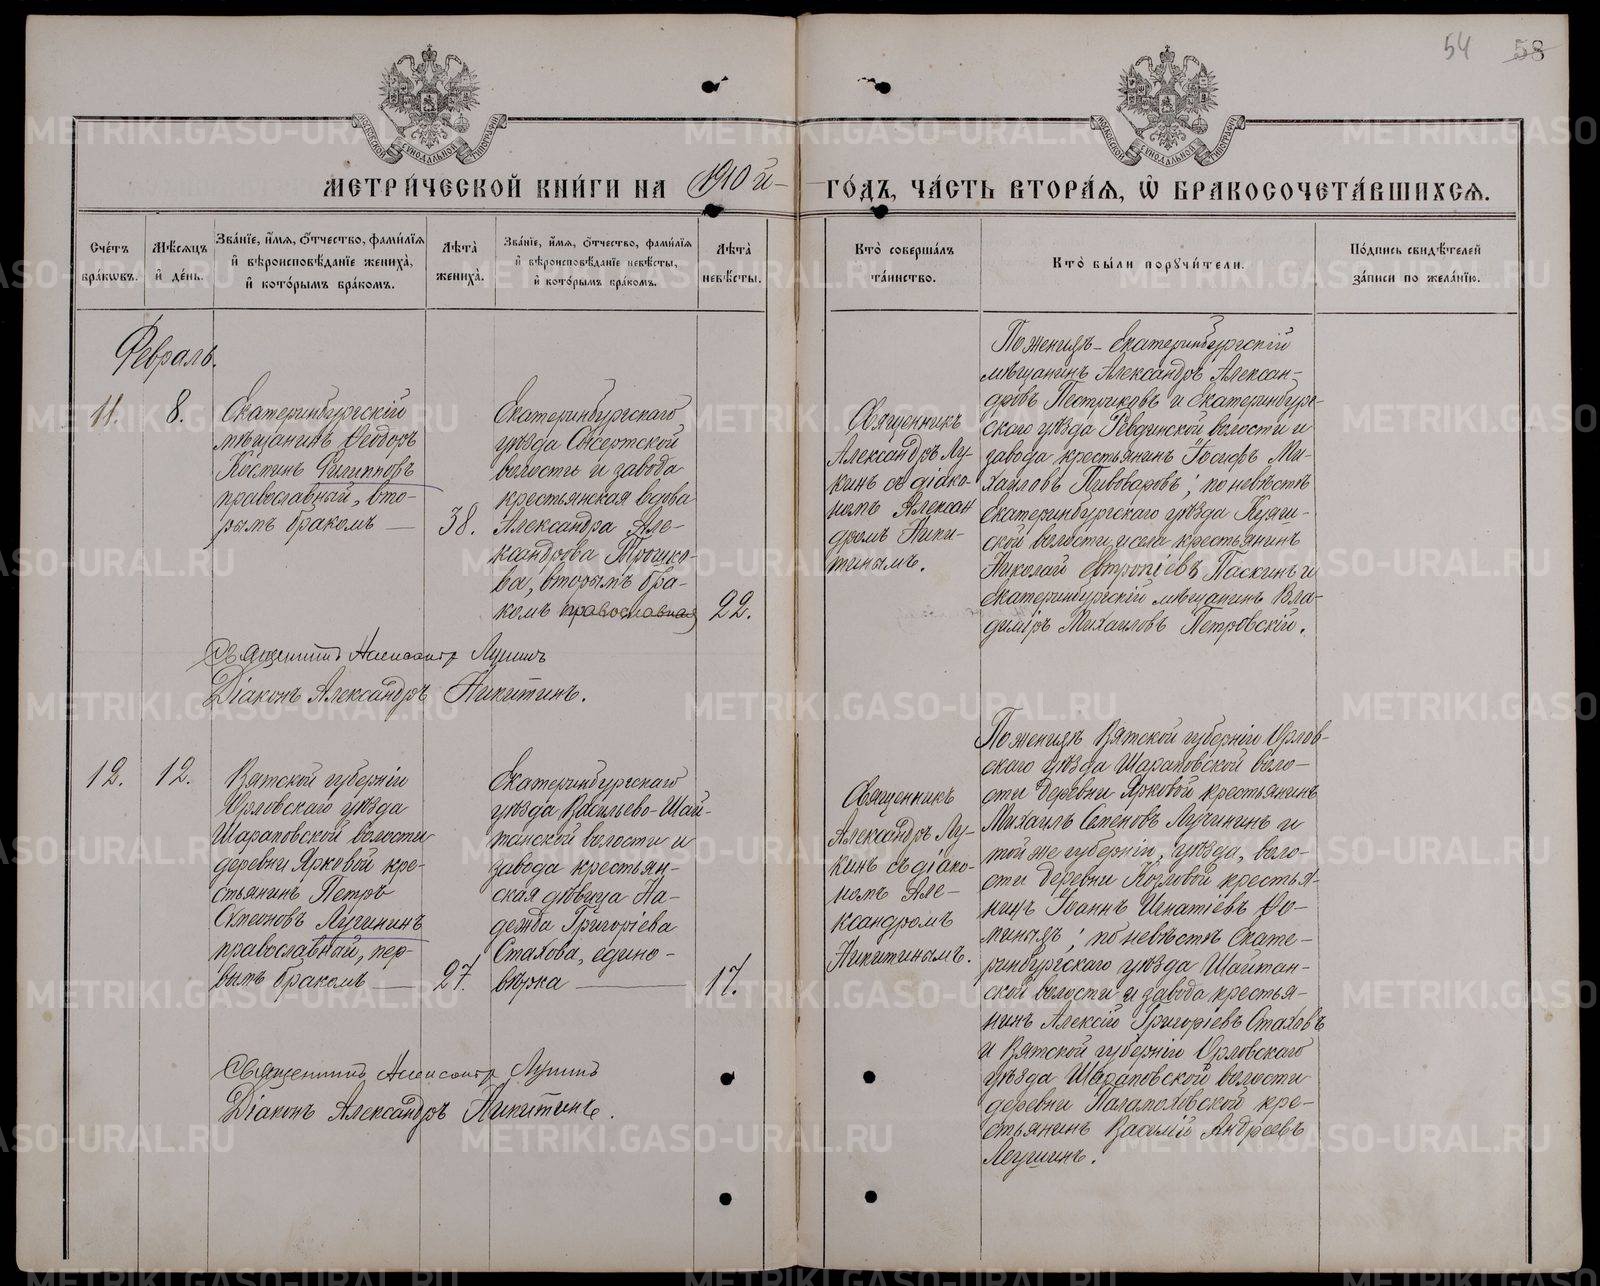 54 58
МЕТРИ́ЧЕСКОЙ КНИ́ГИ НА 1910 й
ГО́ДЪ, ЧА́СТЬ ВТОРА́Я, Ѡ҆ БРАКОСОЧЕТА́ВШИХСЯ.
Сче́тъ бра́кѡвъ.
Мѣ́сяцъ и҆ де́нь.
Зва́нїе, и҆́мя, ѻ҆́тчество, фами́лїя
и҆ вѣроисповѣ́данїе жениха̀,
и҆ кото́рымъ бра́комъ.
Лѣта̀ жениха̀.
Зва́нїе, и҆́мя, ѻ҆́тчество, фами́лїя
и҆ вѣроисповѣ́данїе невѣ́сты,
и҆ кото́рымъ бра́комъ.
Лѣта̀ невѣ́сты.
Кто̀ соверша́лъ
та́инство.
Кто̀ бы́ли порꙋчи́тели.
По́дпись свидѣ́телей
за́писи по жела́нїю.
Февраль.
11.
8.
Екатеринбургскій
мѣщанинъ Ѳеодоръ
Филипповъ
православный, вто-
рымъ бракомъ —
38.
Екатеринбургскаго
уѣзда Сысертской
волости и завода
крестьянская вдова
Александра Але-
ксандрова Трошко-
ва, вторымъ бра-
комъ православная
22.
Священникъ
Александръ Лу-
кинъ съ діако-
номъ Алексан
дромъ Ники-
тинымъ.
По женихѣ – Екатеринбургскій
мѣщанинъ Александръ Алексан-
дровъ Пестриковъ и Екатеринбург-
скаго уѣзда Ревдинской волости и
завода крестьянинъ Іосифъ Ми-
хаиловъ Пивоваровъ; по невѣстѣ
Екатеринбургскаго уѣзда
ской волости и села крестьянинъ
Николай Евтропіевъ Паскинъ и
Екатеринбургскій мѣщанинъ Вла-
диміръ Михаиловъ Петровскій.
Священникъ Александръ Лукинъ
Діаконъ Александръ Никитинъ.
12.
12.
Вятской губерніи
Орловскаго уѣзда
Шараповской волости
деревни Ярковой кре-
стьянинъ Петръ
Семеновъ Лучининъ
православный, пер-
вымъ бракомъ —
27.
Екатеринбургскаго
уѣзда Васильево-Шай-
танской волости и
завода крестьян-
ская дѣвица На-
дежда Григоріева
Стахова, едино-
вѣрка —
17.
Священникъ
Александръ Лу-
кинъ съ діако-
номъ Але-
ксандромъ
Никитинымъ.
По женихѣ Вятской губерніи Орлов-
скаго уѣзда Шараповской воло-
сти деревни Ярковой крестьянинъ
Михаилъ Семеновъ Лучининъ и
той же губерніи, уѣзда, воло-
сти деревни Козловой крестья-
нинъ Іоаннъ Игнатіевъ Ѳо-
миныхъ; по невѣстѣ Екате-
ринбургскаго уѣзда Шайтан-
ской волости и завода крестья-
нинъ Алексій Григоріевъ Стаховъ
и Вятской губерніи Орловскаго
уѣзда Шараповской волости
деревни кре-
стьянинъ Василій Андреевъ
Священникъ Александръ Лукинъ
Діаконъ Александръ Никитинъ.
METRIKI.GASO-URAL.RU